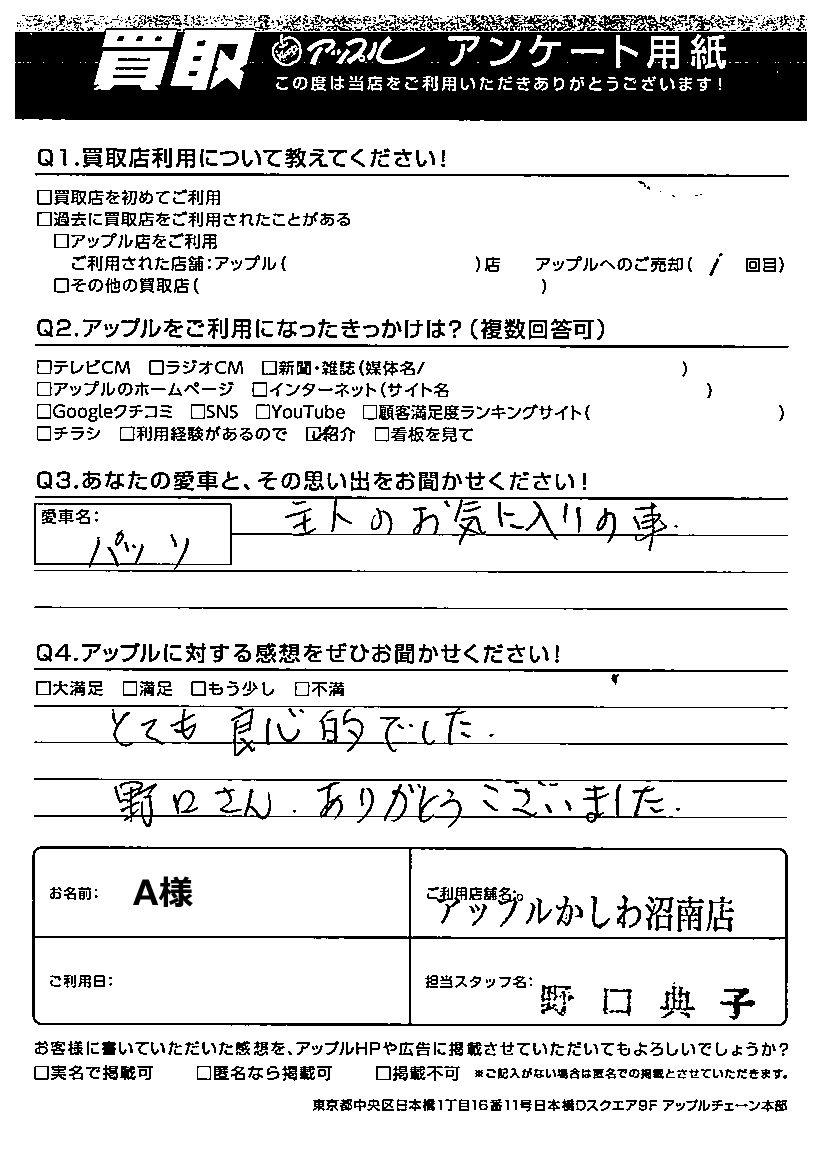 買取 アップル アンケート用紙
この度は当店をご利用いただきありがとうございます!
Q1.買取店利用について教えてください!
□買取店を初めてご利用
□過去に買取店をご利用されたことがある
□アップル店をご利用
ご利用された店舗:アップル( )店 アップルへのご売却( 1 回目)
□その他の買取店( )
Q2.アップルをご利用になったきっかけは?(複数回答可)
□テレビCM □ラジオCM □新聞・雑誌(媒体名/ )
□アップルのホームページ □インターネット(サイト名 )
□Googleクチコミ □SNS □YouTube □顧客満足度ランキングサイト( )
□チラシ □利用経験があるので ☑紹介 □看板を見て
Q3.あなたの愛車と、その思い出をお聞かせください!
愛車名: パッソ
主人のお気に入りの車.
Q4.アップルに対する感想をぜひお聞かせください!
□大満足 □満足 □もう少し □不満
とても良心的でした.
野口さん.ありがとうございました.
お名前: A様
ご利用店舗名:
アップルかしわ沼南店
ご利用日:
担当スタッフ名: 野口典子
お客様に書いていただいた感想を、アップルHPや広告に掲載させていただいてもよろしいでしょうか?
□実名で掲載可 □匿名なら掲載可 □掲載不可 ※ご記入がない場合は匿名での掲載とさせていただきます。
東京都中央区日本橋1丁目16番11号日本橋Dスクエア9F アップルチェーン本部